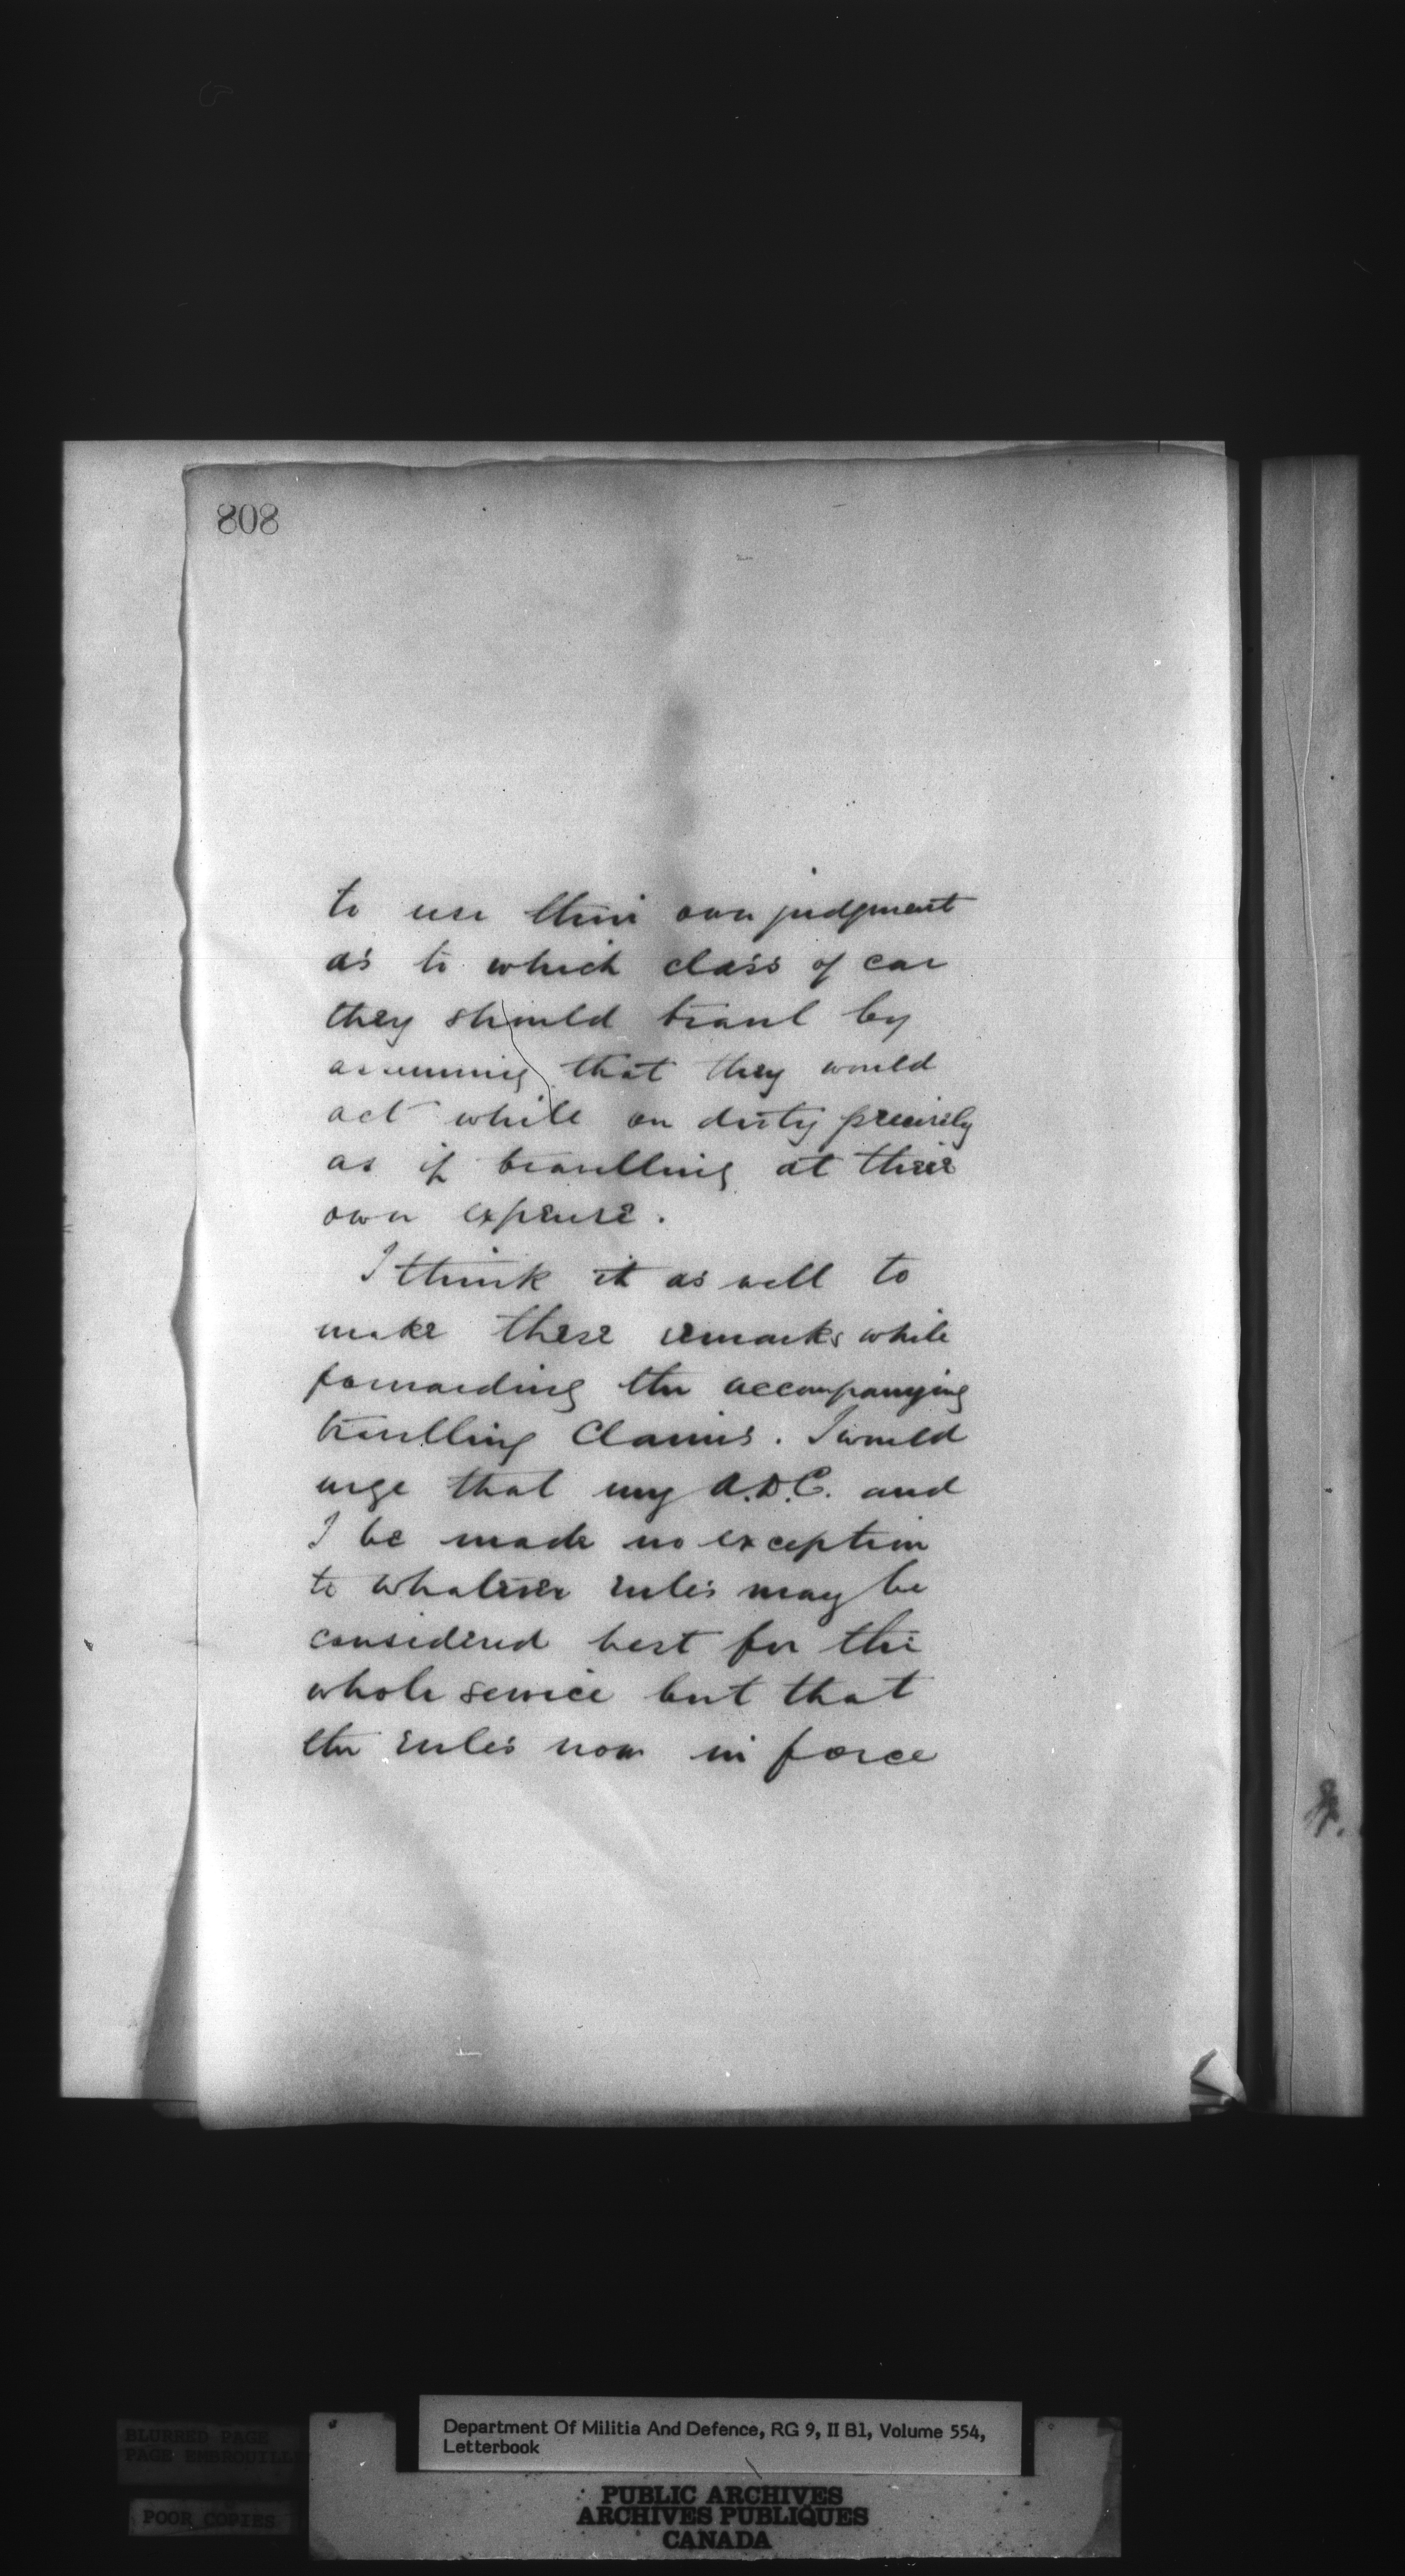 808
to use their own judgment
as to which class of car
they should travel by
assuming that they would
act while on duty precisely
as if travelling at their
own expense.
I think it as well to
make these remarks while
forwarding the accompanying
travelling Claims. I would
urge that my A.D.C. and
I be made no exception
to whatever rules may be
considered best for the
whole service but that
the rules now in force
Department Of Militia And Defence, RG 9, II B1, Volume 554,
Letterbook
PUBLIC ARCHIVES
ARCHIVES PUBLIQUES
CANADA
BLURRED PAGE
PAGE EMBROUILLE
POOR COPIES